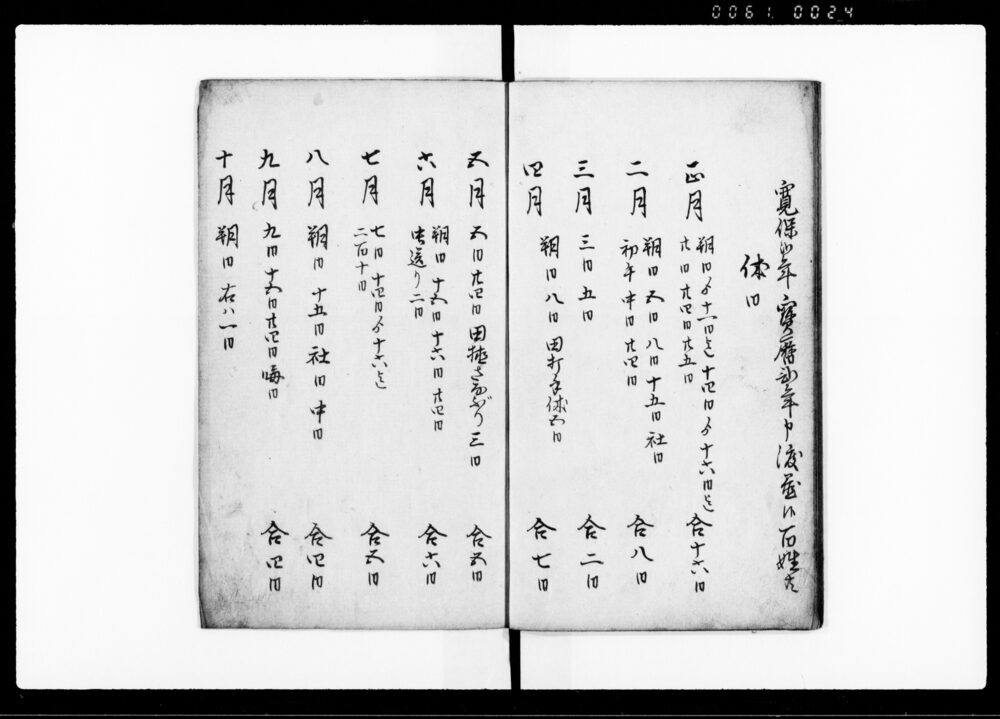 0061 0024
寛保 年寶暦 年申渡置候百姓共
休日
正月 朔日より十一日迄十四日より十六日迄
六日廿四日廿五日 合十六日
二月 朔日五日八日十五日社日
初午中日廿四日 合八日
三月 三日五日 合二日
四月 朔日八日田打手休五日 合七日
五月 五日廿四日田植さなぶり三日 合五日
六月 朔日十五日十六日廿四日
虫送り二日 合六日
七月 七日十四日より十六迄
二百十日 合五日
八月 朔日十五日社日中日 合四日
九月 九日十五日廿四日晦日 合四日
十月 朔日右ハ一日